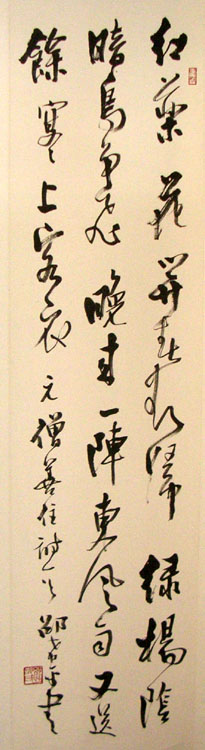 紅藥花開春欲歸綠楊陰
暗鳥爭飛晚來一陣東風雨又送
餘寒上客衣元僧善住詩一首書